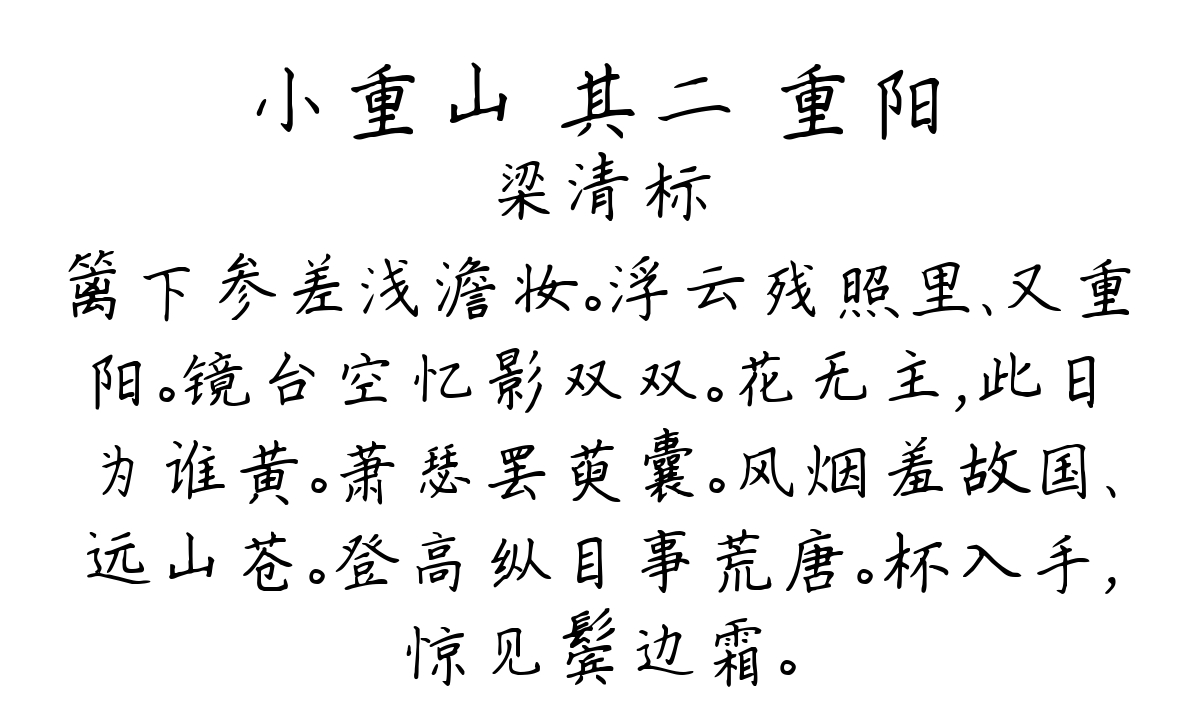 小重山 其二 重阳
梁清标
篱下参差浅澹妆。浮云残照里、又重
阳。镜台空忆影双双。花无主,此日
为谁黄。萧瑟罢萸囊。风烟羞故国、
远山苍。登高纵目事荒唐。杯入手,
惊见鬓边霜。